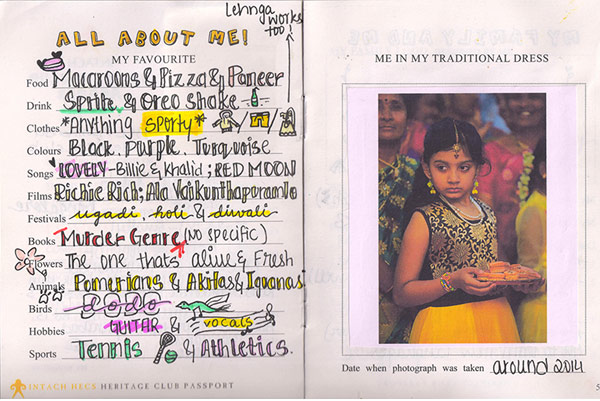 Lehnga
works
too!
ALL ABOUT ME!
MY FAVOURITE
Food Macaroons & Pizza & Paneer
Drink Sprite & Oreo Shake
Clothes *Anything sporty*
Colours Black. Purple. Turquoise
Songs LOVELY-Billie & Khalid; RED MOON
Films Richie Rich; Ala Vaikunthapuramlo
Festivals ugadi, holi & diwali
Books Murder Genre (No specific)
Flowers The one thats alive & Fresh
Animals Pomerians & Akitas & Iguanas
Birds dodo
Hobbies GUITAR & vocals
Sports Tennis & Athletics.
INTACH HECS HERITAGE CLUB PASSPORT
ME IN MY TRADITIONAL DRESS
Date when photograph was taken around 2014
5